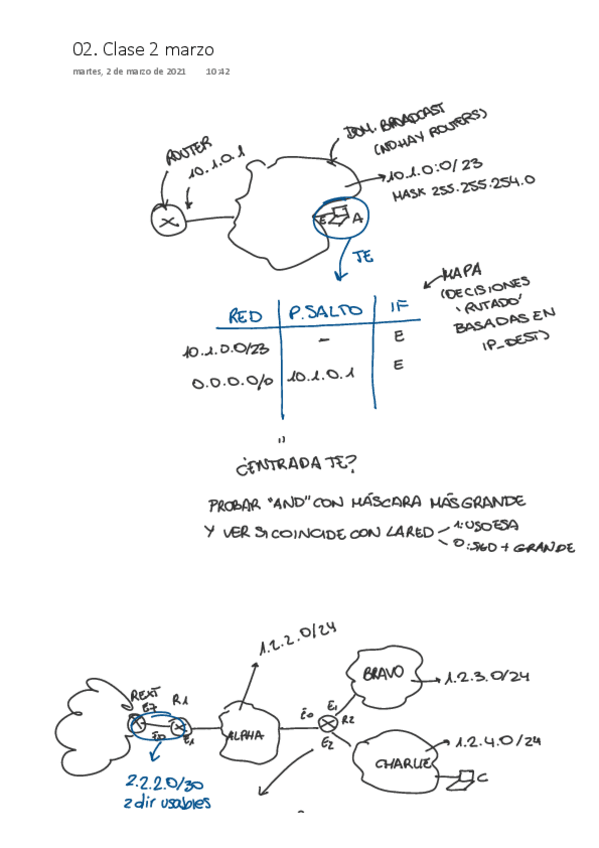 02. Clase 2 marzo
martes, 2 de marzo de 2021 10:42
DOM. BROADCAST
(NO HAY ROUTERS)
ROUTER
10.1.0.1
10.1.0.0/23
MASK 255.255.254.0
E A
TE
MAPA
(DECISIONES
'RUTADO'
BASADAS EN
IP_DEST)
RED P.SALTO IF
10.1.0.0/23 - E
0.0.0.0/0 10.1.0.1 E
¿ENTRADA TE?
PROBAR "AND" CON MÁSCARA MÁS GRANDE
Y VER SI COINCIDE CON LA RED
1: USO ESA
0: + GRANDE
1.2.2.0/24
BRAVO
1.2.3.0/24
REXT
E7
R1
E0
E1
ALPHA
E0
E1
R2
E2
1.2.4.0/24
CHARLIE
C
2.2.2.0/30
2 dir usables